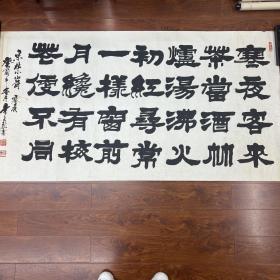 寒夜客來
茶當酒竹
爐湯沸火
初紅尋常
一樣窗前
月纔有梅
花便不同